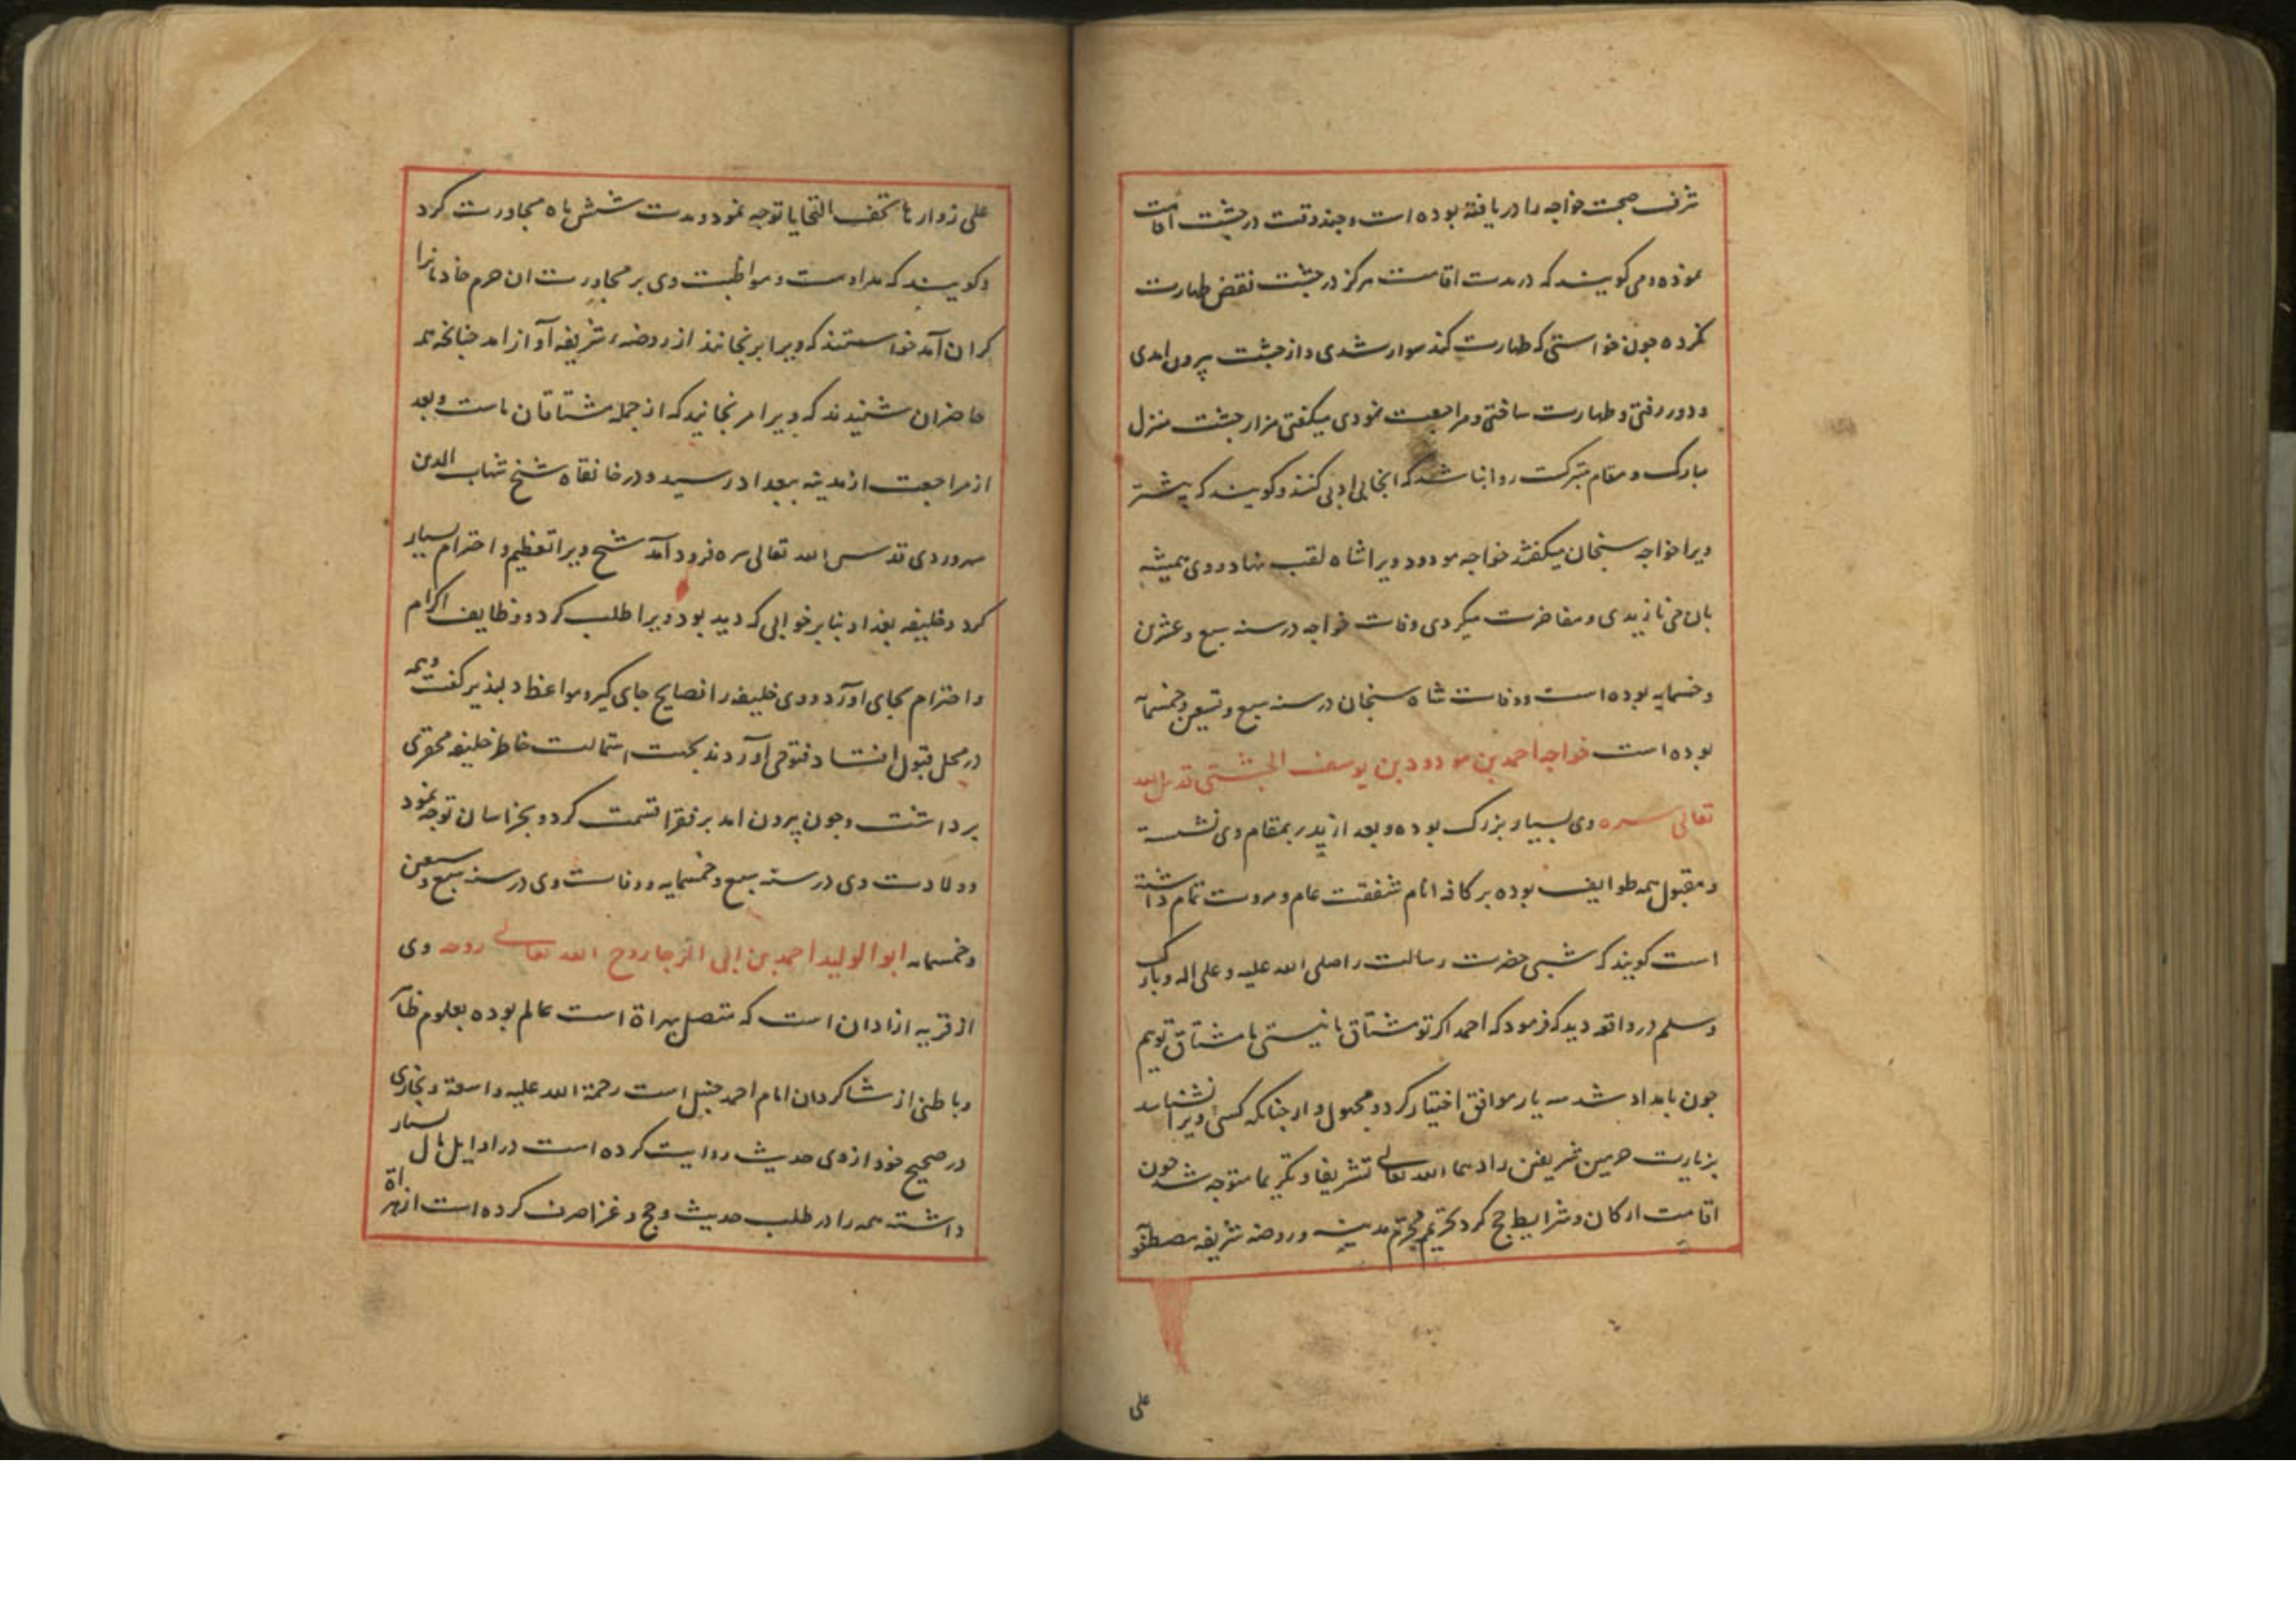 شرف صحبت خواجه را دریافته بوده است و چند وقت در چشت اقامت
نموده و می کویند که در مدت اقامت هرکز در چشت نقض طهارت
نکرده چون خواستی که طهارت کند سوار شدی و از چشت بیرون امدی
و دور رفتی و طهارت ساختی و مراجعت نمودی میکفتی مزار چشت منزل
مبارک و مقام متبرکست روا نباشد که انجا بی ادبی کنند و کویند که پیشتر
ویرا خواجه سنجان میکفتند خواجه مودود ویرا شاه لقب نهاد و وی همیشه
بان می نازیدی و مفاخرت میکردی وفات خواجه در سنه سبع و عشرین
و خمسمایه بوده است و وفات شاه سنجان در سنه سبع و تسعین و خمسمایه
بوده است خواجه احمد بن مودود بن یوسف الچشتی قدس الله
تعالی سره وی بسیار بزرک بوده و بعد از پدر بمقام وی نشسته
و مقبول همه طوایف بوده بر کافه انام شفقت عام و مروت تمام داشته
است کویند که شبی حضرت رسالت را صلی الله علیه و علی اله و بارک
و سلم در واقعه دید که فرمود که احمد اکر تو مشتاق ما نیستی ما مشتاق توییم
چون بامداد شد سه یار موافق اختیار کرد و مجهول وار چنانکه کسی ویرا نشناسد
بزیارت حرمین شریفین زادهما الله تعالی تشریفا و تکریما متوجه شد چون
اقامت ارکان و شرایط حج کرد بحریم محترم مدینه و روضه شریفه مصطفو
علی
علی زوارها تحف التحایا توجه نمود و مدت شش ماه مجاورت کرد
و کویند که مداومت و مواظبت وی بر مجاورت ان حرم خادمانرا
کران آمد خواستند که ویرا برنجانند از روضه شریفه آواز امد چنانچه همه
حاضران شنیدند که ویرا مرنجانید که از جمله مشتاقان ماست و بعد
از مراجعت از مدینه ببغداد رسید و در خانقاه شیخ شهاب الدین
سهروردی قدس الله تعالی سره فرود آمد شیخ ویرا تعظیم و احترام بسیار
کرد و خلیفه بغداد بنا بر خوابی که دیده بود ویرا طلب کرد و وظایف اکرام
و احترام بجای اورد و وی خلیفه را نصایح جای کیر و مواعظ دلپذیر کفت و همه
در محل قبول افتاد فتوحی آوردند بجهت استمالت خاطر خلیفه محقری
برداشت و چون بیرون امد بر فقرا قسمت کرد و بخراسان توجه نمود
و ولادت وی در سنه سبع و خمسمایه و وفات وی در سنه سبع و سبعین
و خمسمایه ابو الولید احمد بن ابی الرجا روح الله تعالی روحه وی
از قریه ازادان است که متصل هراة است عالم بوده بعلوم ظا
و باطنی از شاکردان امام احمد حنبل است رحمة الله علیه واسعة و بخاری
در صحیح خود از وی حدیث روایت کرده است در اوایل مال بسیار
داشته همه را در طلب حدیث و حج و غزا صرف کرده است از هراة